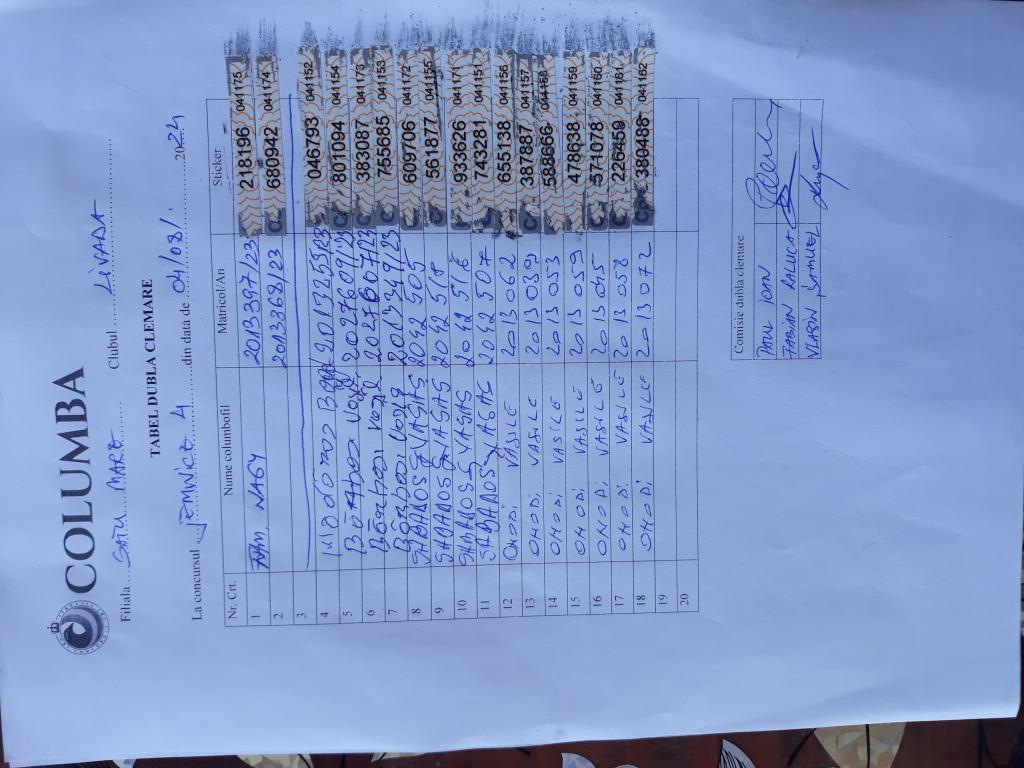 COLUMBA
Filiala ... SATU MARE ........ Clubul ........ LIVADA ........
TABEL DUBLA CLEMARE
La concursul JEMNICE 4 ........ din data de 04/08/ ........ 2024
Nr. Crt. Nume columbofil Matricol/An Sticker
1 FAM. NAGY 2013397/23 218196 041175
2 2013368/23 680942 041174
3
4 2013253/23 046793 041152
5 2027609/23 801094 041154
6 2027607/23 383087 041173
7 2013249/23 755685 041153
8 SABANOS YASAS 2042 505 609706 041172
9 SABANOS YASAS 2042 518 561877 041155
10 SABANOS YASAS 2042 516 933626 041171
11 SABANOS YASAS 2042 507 743281 041151
12 OHODI VASILE 2013 062 655138 041156
13 OHODI VASILE 2013 039 387887 041157
14 OHODI VASILE 2013 053 588666 041158
15 OHODI VASILE 2013 059 478838 041159
16 OHODI VASILE 2013 045 571078 041160
17 OHODI VASILE 2013 058 226459 041161
18 OHODI VASILE 2013 072 380489 041162
19
20
Comisie dubla clemare
PAUL IOAN
FABIAN RALUCA
SAMUEL